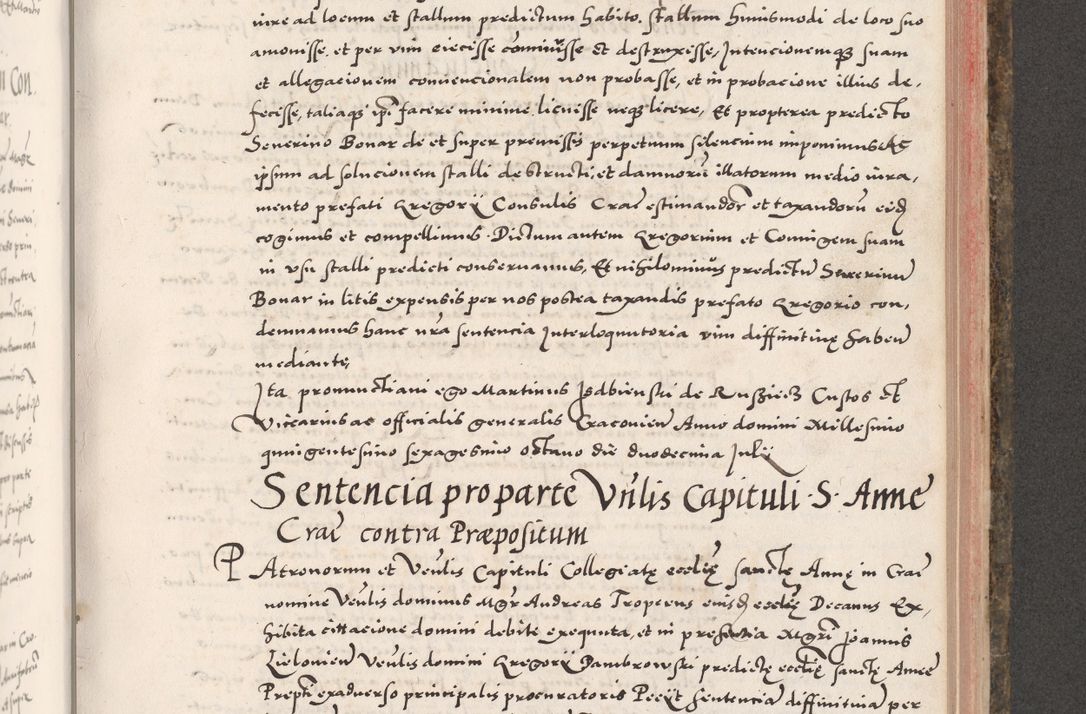 nire ad locum et stallum predictum habito. stallum huiusmodi de loco suo
amouisse, et per vim eiecisse cominusse et destruxisse, Intencionemqȝ suam
et allegacionem convencionalem non probasse, et in probacione illius de,
fecisse, taliaqȝ ipi facere minime licuisse neqȝ licere, Et propterea predicto
Seuerino Bonar de et super premissis perpetuum silencium imponimus Ac
ipsum ad solucionem stalli destructi, et damnorū illatorum medio iura,
mento prefati Gregorij Consulis Crac estimandor et taxandorū eid
cogimus et compellimus. Dictum autem Gregorium et Coniugem suam
in vsu stalli predicti conseruamus, Et nihilominus predictū Seuerinū
Bonar in litis expensis per nos postea taxandis prefato Gregorio con,
demnamus hanc nrā sentencia Interloquutoria vim diffinitiuę haben
mediante,
Ita pronunctiaui ego Martinus Isdbienski de Rusziecz Custos et
Viccarius ac officialis generalis Cracouien Anno domini Millesimo
quingentesimo sexagesimo octauo die duodecima Julij
Sentencia pro parte Vnlis Capituli S. Anne
Crac contra Præpositum
PAtronorum et Veñlis Capituli Collegiatę ecclię sanctę Annę in Crac
nomine Veñlis dominus Mgr Andreas Troperus eiusd ecclię Decanus Ex,
hibita cittacione domini debite exequuta, et in presentia Mgri Joannis
Zielonien Veñlis domini Gregorij Dambrowski predictę ecclię sanctę Anne
Prepti ex aduerso principalis procuratoris Pecijt Sentencia diffinitiua per